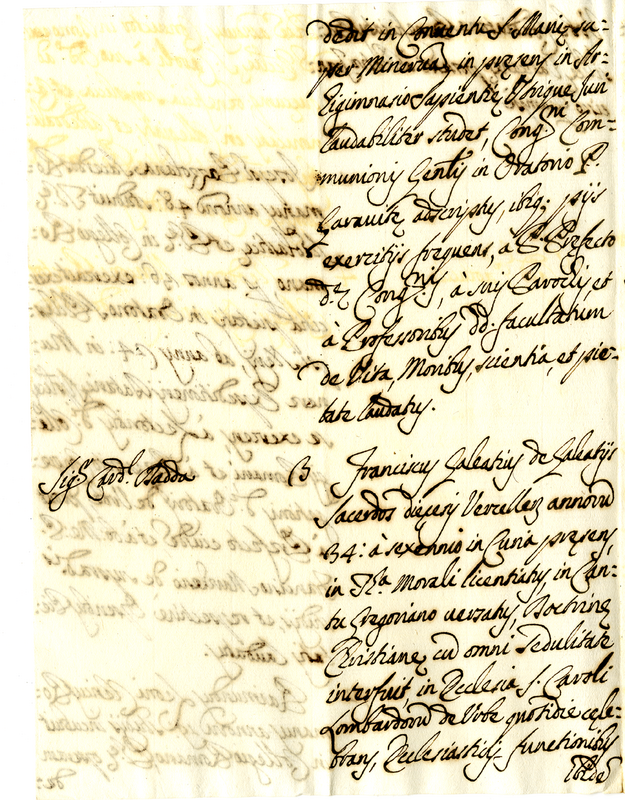 dedit in Conventu S. Mariæ su-
per Minervã, et in præsens in Ar-
chigimnasio Sapientiæ Utrique Juri
laudabiliter studet, Cong.ni Com-
munionis Gen'lis in Oratorio P.
Caravitæ adscriptus, ibiq; pijs
exercitijs frequens, à P. Præfecto
d.æ Cong.nis, à suis Parochis, et
à Professoribus dd. facultatum
de Vita, Moribus, scientia, et pie-
tate laudatus.
Sig.r Card.l Badda B Franciscus Galeatius de Galeatijs
Sacerdos diæcesis Vercellen annorũ
34: à sexennio in Curia præsens,
in Th.a Morali licentiatus, in Can-
tu Gregoriano versatus, Doctrinæ
Christianæ cũ omni sedulitate
interfuit, in Ecclesia S. Caroli
Lombardorũ de Urbe quotidie cele-
brans, Ecclesiasticis functionibus
ibidẽ